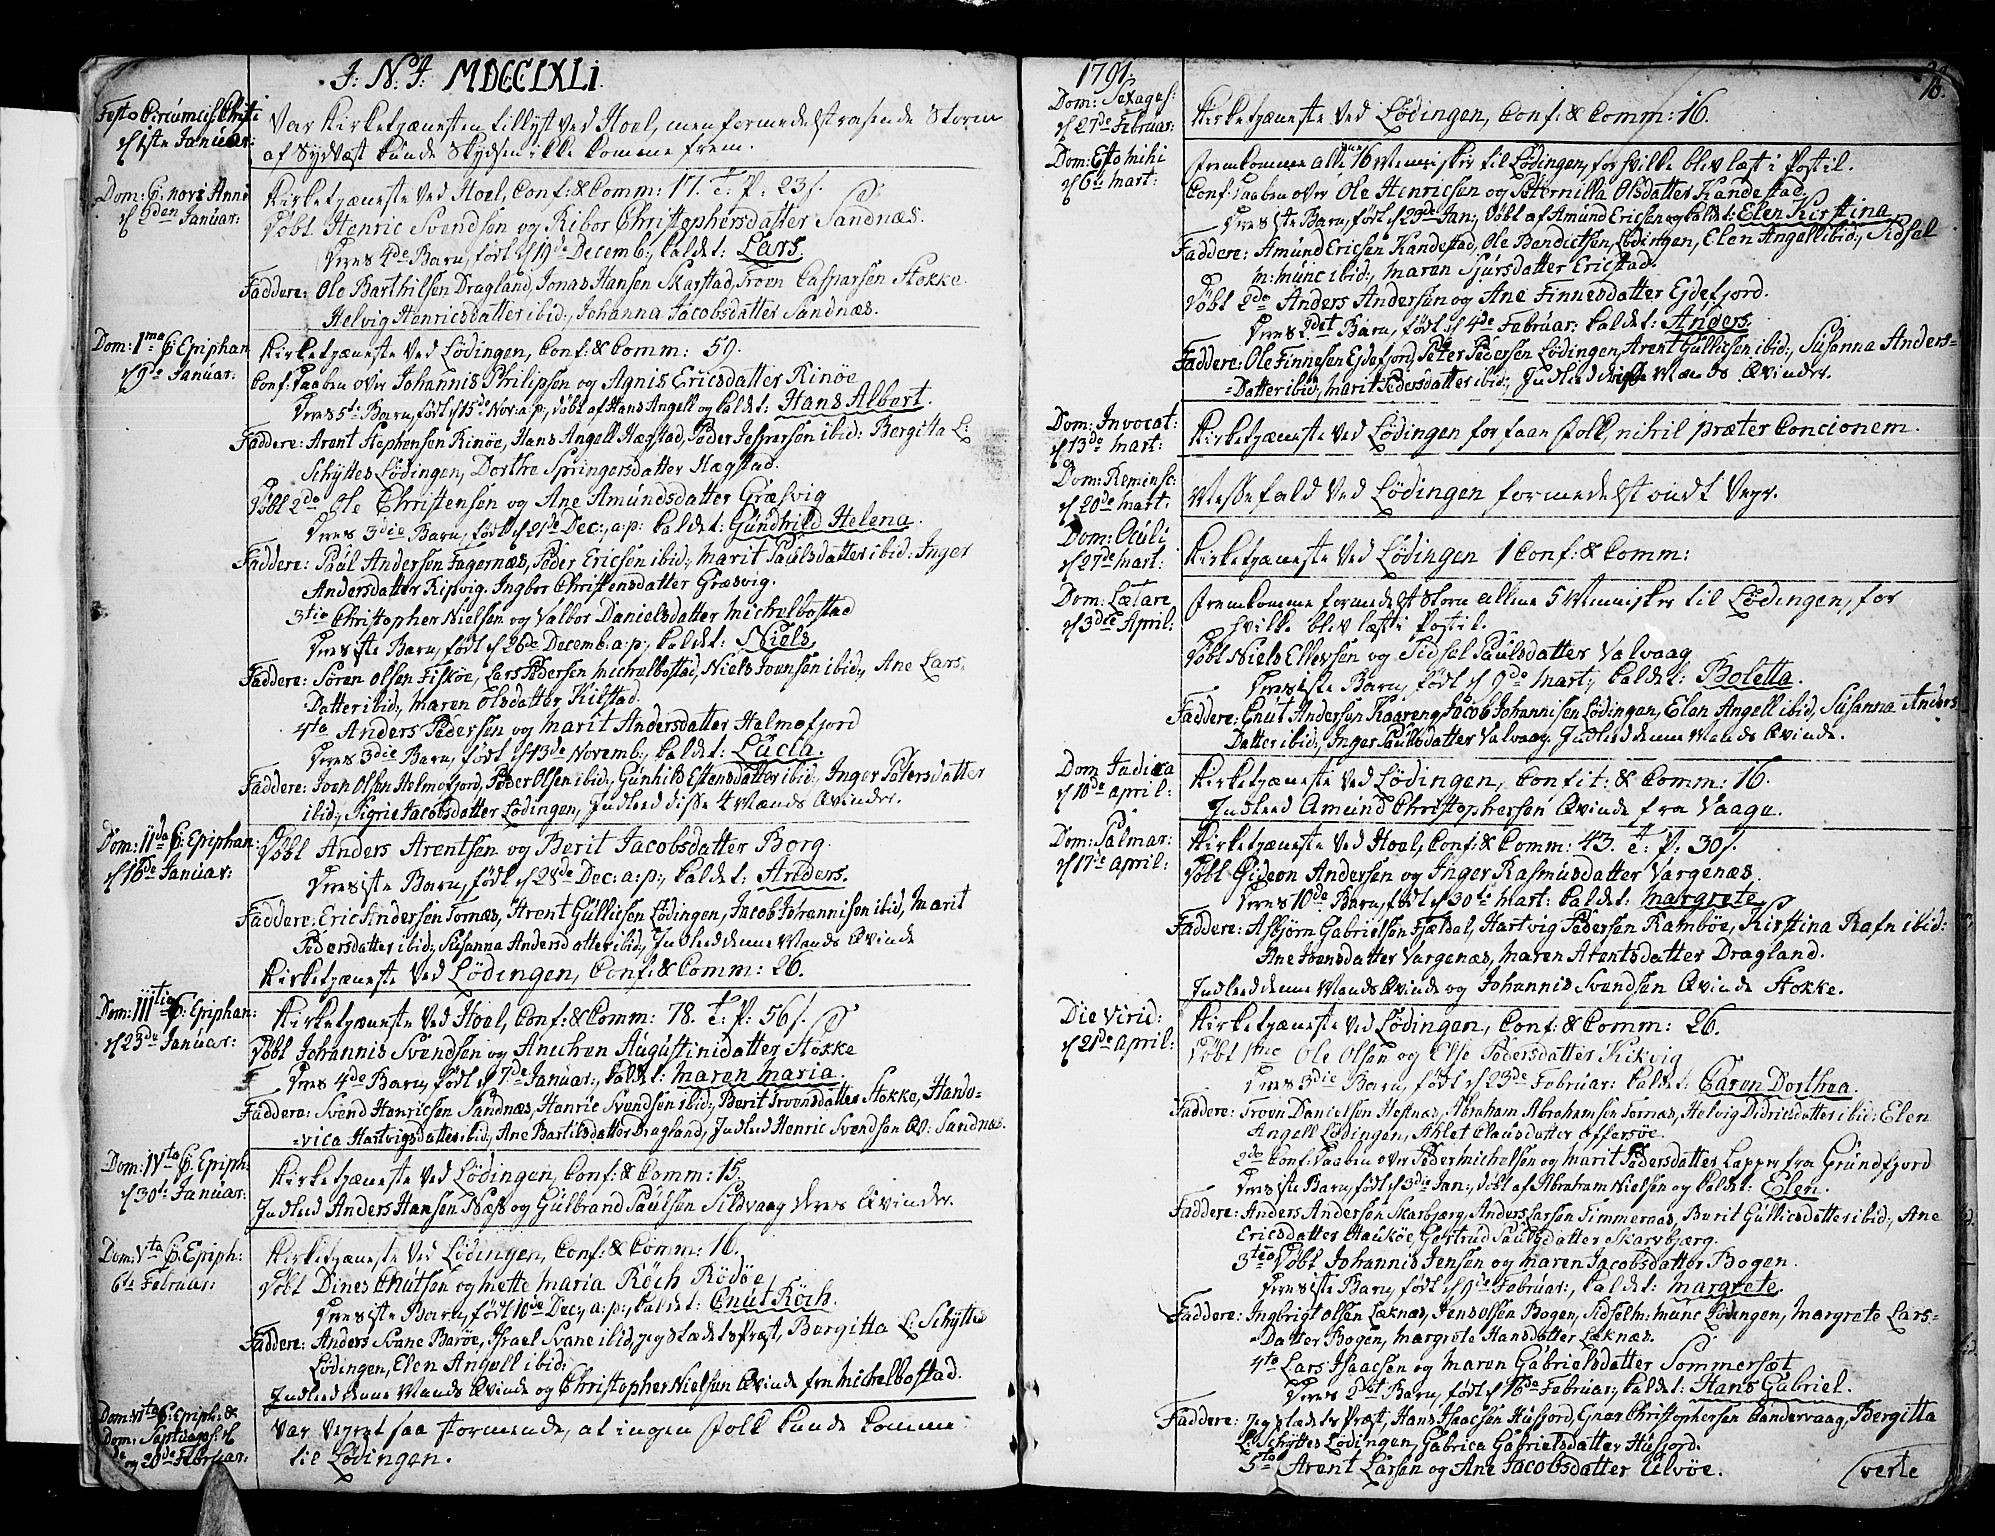 J: N: J: MDCCLXLi
Festo Circumcis: Christi
d 1ste Januar:
Var Kirketjænesten tillyst ved Hoel, men formedelst rasende Storm
af Sydvest kunde Skydsen ikke komme frem.
Dom: p: novi Anni
d 2den Januar:
Kirketjæneste ved Hoel, Conf: & Comm: 17. T: P: 23 s.
Döbt Henric Svendsen og Ribor Christophersdatter Sandnæs.
Deres 4de Barn, födt d 19de Decemb:, kaldet: Lars.
Faddere: Ole Barthilsen Dragland, Jonas Hansen Skarstad, Troen Casparsen Stokke.
Helvig Henricsdatter ibid:, Johanna Jacobsdatter Sandnæs.
Dom: 1ma p: Epiphan
d 9de Januar:
Kirketjæneste ved Lödingen, Conf: & Comm: 59.
Conf: Daaben over Johannis Philipsen og Agnis Ericsdatter Rinöe
Deres 5te Barn, födt d 15de Nov: a: p:, döbt af Hans Angell og kaldet: Hans Albert.
Faddere: Arent Stephensen Rinöe, Hans Angell Hægstad, Peder Jespersen ibid: Bergitta L:
Schyttes Lödingen, Dorthe Springersdatter Hægstad.
Döbt 2do Ole Christensen og Ane Amundsdatter Græsvig
Deres 3die Barn, födt d 21de Dec:, a: p: kaldet: Gundhild Helena.
Faddere: Paul Andersen Fagernæs, Peder Ericsen ibid:, Marit Paulsdatter ibid: Inger
Andersdatter Ripvig. Ingbor Christensdatter Græsvig.
3tio Christopher Nielsen og Valbor Danielsdatter Michelbostad
Deres 1ste Barn, födt d 26de Decemb: a: p:, kaldet: Niels.
Faddere: Sören Olsen Fisköe, Lars Pedersen Michelbostad, Niels Ivensen ibid:, Ane Lars
Datter ibid:, Maren Olsdatter Kilstad.
4to Anders Pedersen og Marit Andersdatter Halmefjord
Deres 3die Barn, födt d 13de Novemb:, kaldet: Lucia.
Faddere: Iven Olsen Helmefjord, Peder Olsen ibid:, Gunhild Ellensdatter ibid:, Inger Petersdatter
ibid:, Sigrie Jacobsdatter Lödingen, Indleed disse 4 Mænds Qvinder.
Dom: IIda p: Epiphan:
d 16de Januar:
Döbt Anders Arentsen og Berit Jacobsdatter Borg.
Deres 1ste Barn, födt d 28de Dec: a: p:, kaldet: Anders.
Faddere: Eric Andersen Fornæs, Arent Gullicsen Lödingen, Jacob Johannisen ibid, Marit
Pedersdatter ibid:, Susanna Andersdatter ibid:, Indleed denne Mands Qvinde
Kirketjæneste ved Lödingen, Conf: & Comm: 26.
Dom: IIItia p: Epiphan:
d 23de Januar:
Kirketjæneste ved Hoel, Conf: & Comm: 78. T: P: 56 s.
Döbt Johannis Svendsen og Anichen Augustinidatter Stokke
Deres 4de Barn, födt d 7de Januar:, kaldet: Maren Maria.
Faddere: Svend Henricsen Sandnæs, Henric Svendsen ibid:, Berit Troensdatter Stokke, Hand-
=vica Hartvigsdatter ibid:, Ane Bartilsdatter Dragland, Indleed Henric Svendsen Qv: Sandnæs.
Dom: IVta p: Epiph:
d 30te Januar:
Kirketjæneste ved Lödingen, Conf: & Comm: 15.
Indleed Anders Hansen Næss og Gulbrand Paulsen Sildvaag deres Qvinder.
Dom: Vta p: Epiph:
6te Februar:
Kirketjæneste ved Lödingen, Conf: & Comm: 16.
Döbt Dines Cnutsen og Mette Maria Röch Rödöe
Deres 1ste Barn, födt 10de Dec, a: p:, kaldet: Cnut Röch.
Faddere: Anders Svane Baröe, Israel Svane ibid, Jeg stedets Præst, Bergitta L: Schyttes
Lödingen, Elen Angell ibid:
Indleed denne Mands Qvinde og Christopher Nielsen Qvinde fra Michelbostad.
Dom: VIta p: Epiph: &
Dom: Septuages: d
og 20de Februar:
Var Veyret saa stormende, at ingen Folk kunde komme
til Lödingen.
1791.
Dom: Sexages:
d 27de Februar:
Kirketjæneste ved Lödingen, Conf: & Comm: 16.
Dom: Esto mihi
d 6te Mart:
Fremkomme alle 16 Mennisker til Lödingen, for hvilke blev læst i Postil.
Conf: Daaben over Ole Henricsen og Peternilla Olsdatter Kandestad.
Deres 1ste Barn, födt d 23de Jan:, döbt af Amund Ericsen og kaldet: Elen Kirstina.
Faddere: Amund Ericsen Kandestad, Ole Bendictsen Lödingen, Elen Angell ibid:, Sidsel
M: Munc ibid:, Maren Sjursdatter Ericstad.
Döbt 2do Anders Andersen og Ane Finnesdatter Ejdefjord.
Deres 2det Barn, födt d 4de Februar: kaldet: Anders.
Faddere: Ole Finnesen Ejdefjord, Peter Pedersen Lödingen, Arent Gullicsen ibid:, Susanna Anders=
=Datter ibid, Marit Pedersdatter ibid:, Indleed disse Mænds Qvinder.
Dom: Invocat:
d 13de Mart:
Kirketjæneste ved Lödingen for faae Folk, nihil præter Concionem.
Dom: Reminsc:
d 20de Mart:
Messefald ved Lödingen formedelst ondt Veyr.
Dom: Oculi
d 27de Mart:
Kirketjæneste ved Lödingen 1 Conf: & Comm:
Dom: Lætare
d 3die April:
Fremkomme formedelst Storm allene 5 Mennisker til Lödingen, for
hvilke blev læst i Postil.
Döbt Niels Ellevsen og Sidsel Paulsdatter Valvaag
Deres 1ste Barn, födt d 9de Mart:, kaldet: Boletta.
Faddere: Cnut Andersen Kaareng, Jacob Johannisen Lödingen, Elen Angell ibid, Susanna Anders
Datter ibid:, Inger Paulsdatter Valvaag, Indleed denne Mands Qvinde.
Dom Judica
d 10de April:
Kirketjæneste ved Lödingen, Confit: & Comm: 16.
Indleed Amund Christophersen Qvinde fra Vaage.
Dom: Palmar:
d 17de April:
Kirketjæneste ved Hoel, Conf: & Comm: 43. T: P: 30 s.
Döbt Gideon Andersen og Inger Rasmusdatter Vargenæs.
Deres 10de Barn, födt d 30te Mart: kaldet: Margrete
Faddere: Asbjörn Gabrielsen Fjeldal, Hartvig Pedersen Ramböe, Kirstina Rafn ibid:
Ane Ivensdatter Vargenæs, Maren Arentsdatter Dragland.
Indleed denne Mands Qvinde og Johannis Svendsen Qvinde Stokke.
Die Virid:
d 21de April:
Kirketjæneste ved Lödingen, Conf: & Comm: 26.
Döbt 1mo Ole Olsen og Else Pedersdatter Kikvig
Deres 3die Barn, födt d 23de Februar: kaldet: Caren Dorthea.
Faddere: Troen Danielsen Hestnæs, Abraham Abrahamsen Fornæs, Helvig Didricsdatter ibid: Elen
Angell Lödingen, Ahlet Clausdatter Offersöe.
2do Conf: Daaben over Peder Michelsen og Marit Pedersdatter Lapper fra Grundfjord
Deres 1ste Barn, födt d 3die Jan:, döbt af Abraham Nielsen og kaldet: Elen.
Faddere: Anders Andersen Skarbjerg, Anders Larsen Timmernæs, Berit Gullicsdatter ibid:, Ane
Ericsdatter Hauköe, Gertrud Paulsdatter Skarvbjærg.
3tio Döbt Johannis Jensen og Maren Jacobsdatter Bogen.
Deres 1ste Barn, födt d 9de Februar:, kaldet: Margrete
Faddere: Ingbrigt Olsen Læknæs, Jens Olsen Bogen, Sidsel M: Munc Lödingen, Margrete Lars-
Datter Bogen, Margrete Hansdatter Læknæs.
4to Lars Isaacsen og Maren Gabrielsdatter Sommersæt
Deres 2det Barn, födt d 16de Februar:, kaldet: Hans Gabriel.
Faddere: Jeg stedets Præst, Hans Isaacsen Husjord, Enar Christophersen Sandervaag, Bergitta
L: Schyttes Lödingen, Gabrica Gabrielsdatter Husjord.
5to Arent Larsen og Ane Jacobsdatter Ulvöe.
(verte